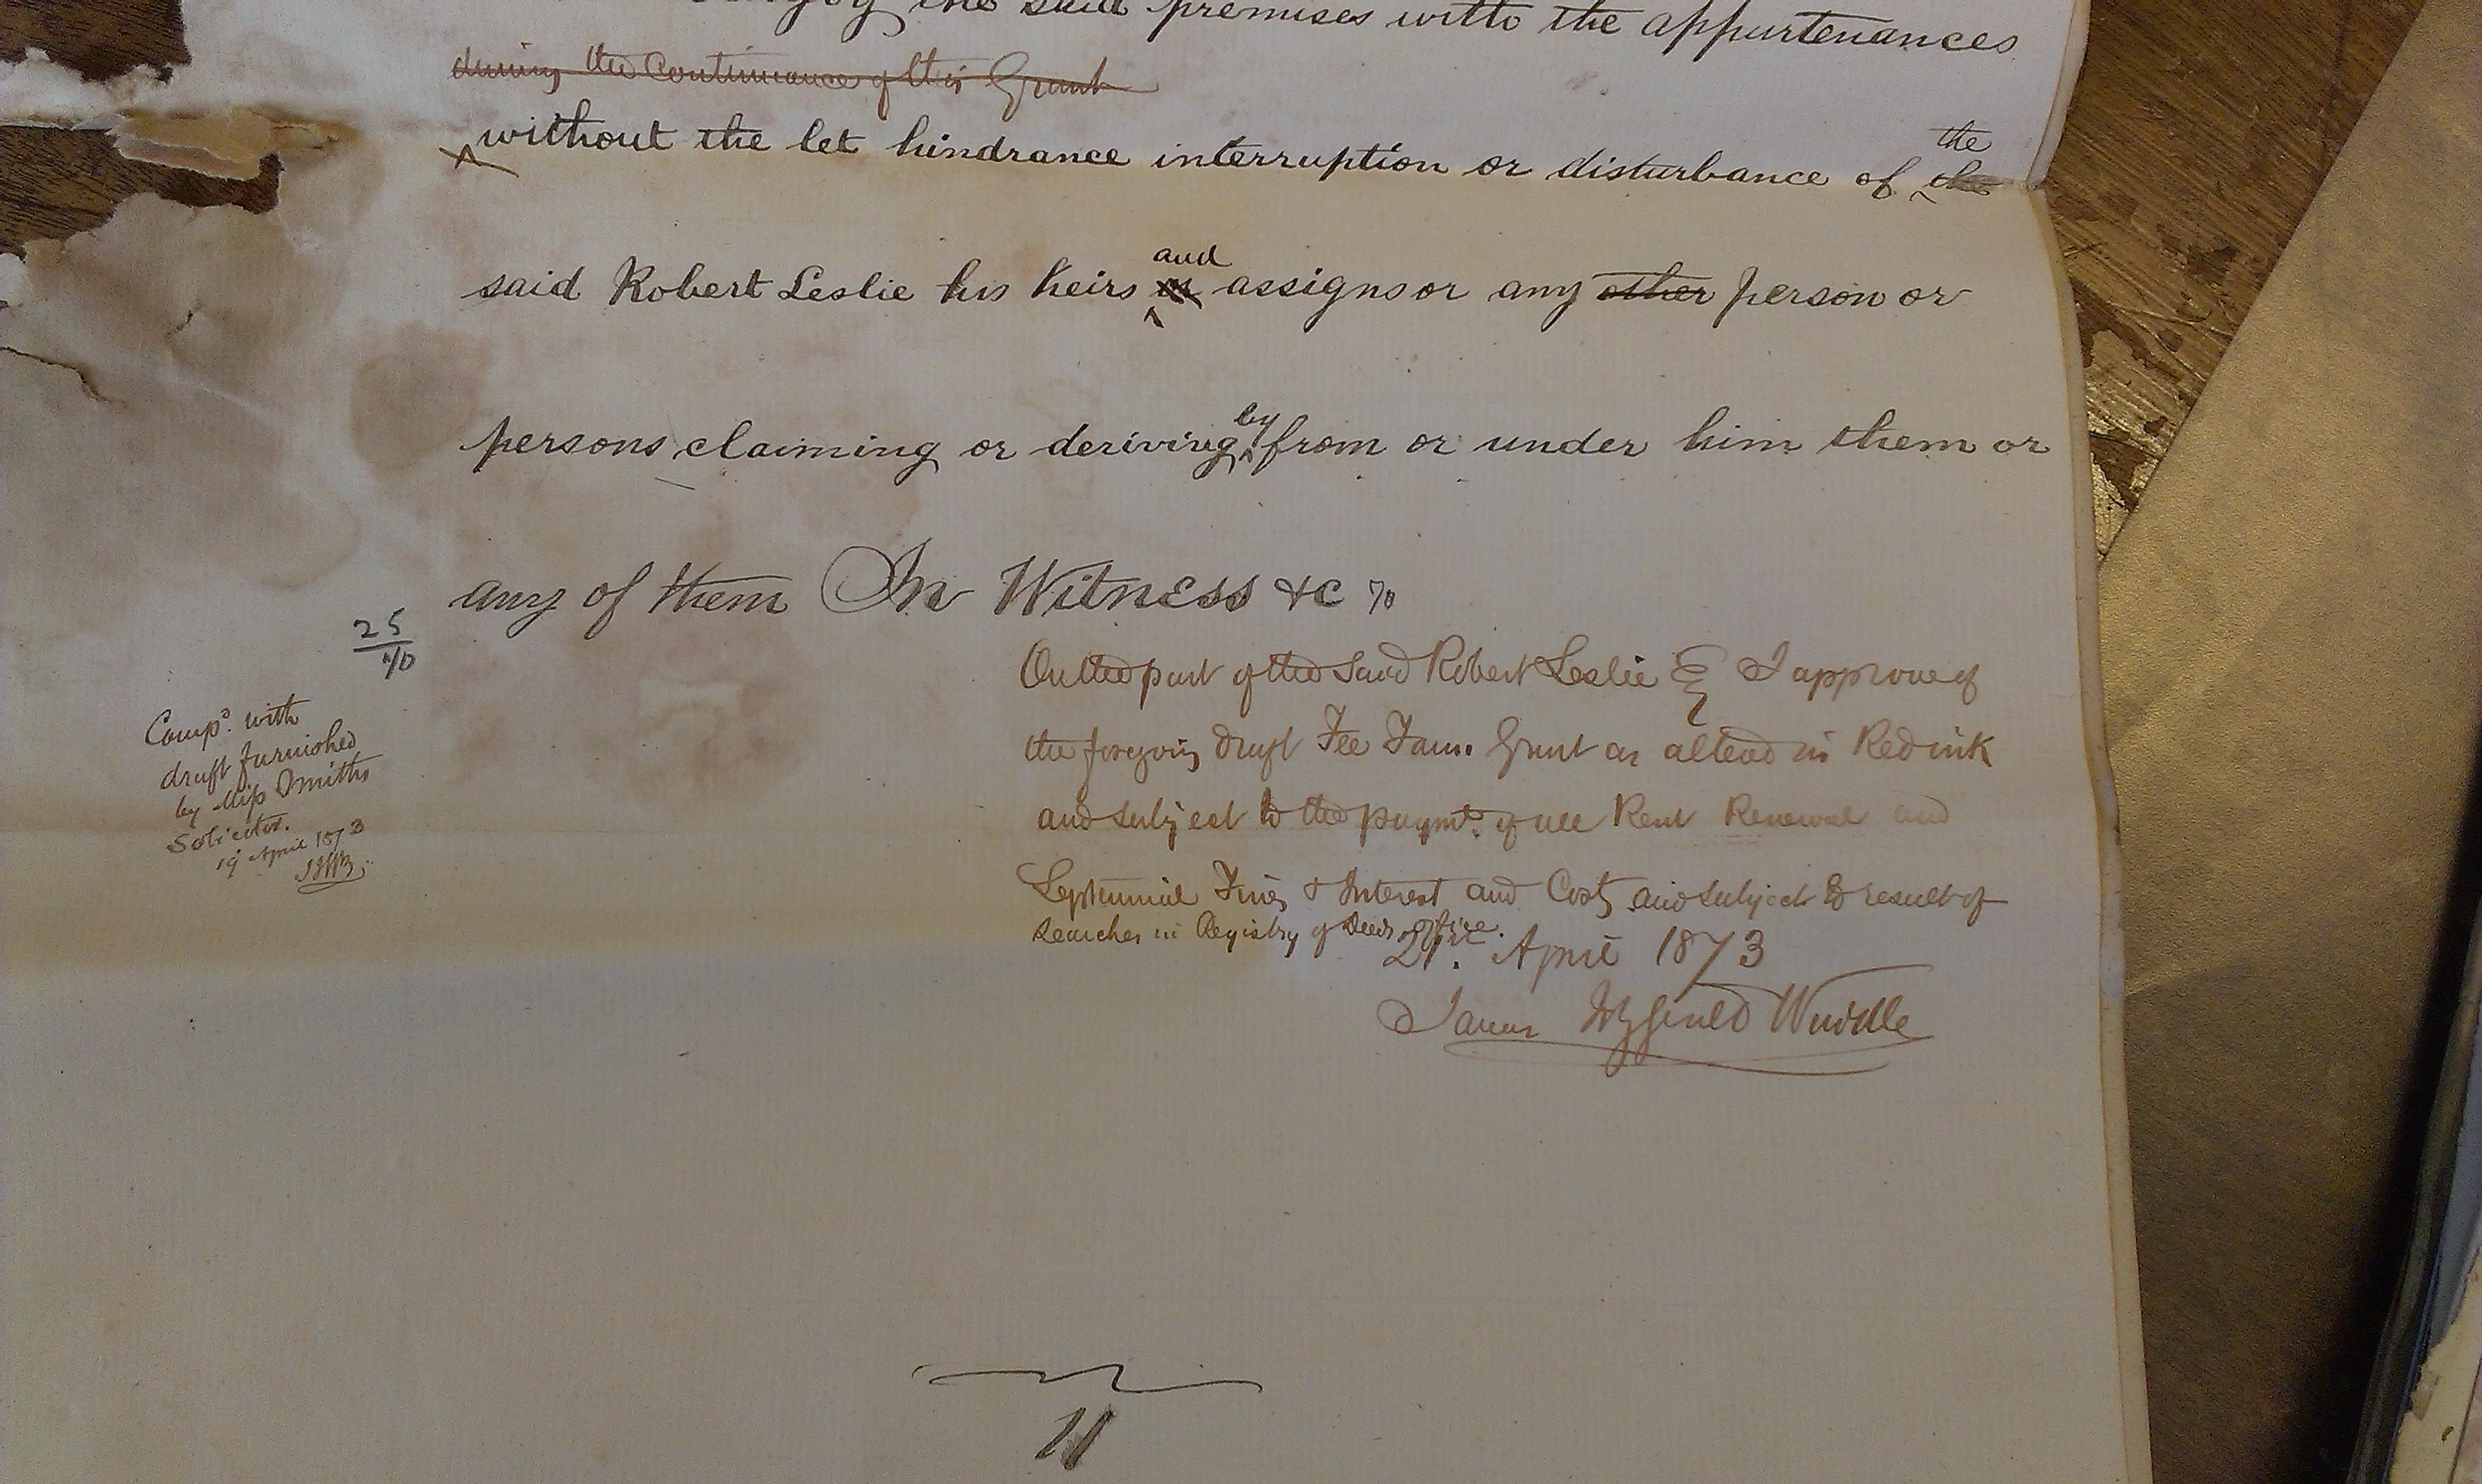 enjoy the said premises with the appurtenances
during the Continuance of this Grant
without the let hindrance interruption or disturbance of the
the
said Robert Leslie his heirs and assigns or any other person or
persons claiming or deriving by from or under him them or
any of them In Witness &c
25
/10
On the part of the said Robert Leslie Esq I approve of
the foregoing draft Fee Farm Grant as altered in Red ink
and subject to the paymt. of all Rent Renewal and
Septennial Fines & Interest and Costs and subject to result of
searches in Registry of Deeds office.
21st. April 1873
James Fitzgerald Waddle
Compd. with
draft furnished
by Miss Smiths
Solicitor.
19 April 1873
11